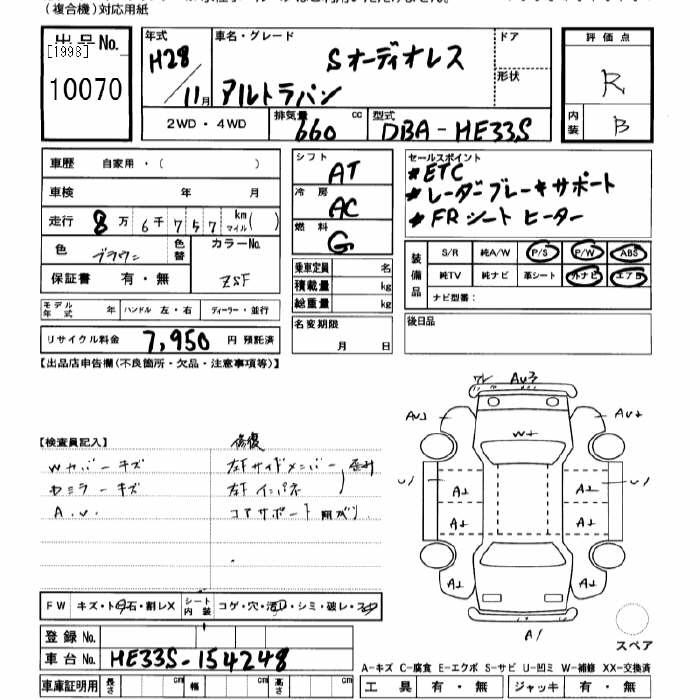 (複合機)対応用紙
出品No.
[1998]
10070
年式 H28/11月
車名・グレード Sオーディオレス
アルトラパン
ドア
形状
評価点
R
内装 B
2WD・4WD
排気量 660 cc
型式 DBA-HE33S
車歴 自家用・( )
車検 年 月
走行 8万6千757 km マイル( )
色 ブラウン
色替
カラーNo. ZSF
保証書 有・無
シフト AT
冷房 AC
燃料 G
乗車定員 名
積載量 kg
総重量 kg
名変期限
月 日
セールスポイント
*ETC
*レーダーブレーキサポート
*FRシートヒーター
装備品
S/R 純A/W P/S P/W ABS
純TV 純ナビ 革シート 外ナビ エアB
ナビ型番:
後日品
モデル年式 年 ハンドル 左・右 ディーラー・並行
リサイクル料金 7,950 円 預託済
【出品店申告欄(不良箇所・欠品・注意事項等)】
【検査員記入】 修復
Wカバーキズ 左Fサイドメンバー
Rミラーキズ 左Fインパネ
コアサポート 曲がり
FW キズ・ト石・割レX シート内装 コゲ・穴・汚レ・シミ・破レ・スレ
登録No.
車台No. HE33S-154248
車庫証明用 長さ cm 幅 cm 高さ cm
A3
A2
W2
A2 A2
A2 A2
A2 A2
A1
スペア
A-キズ C-腐食 E-エクボ S-サビ U-凹ミ W-補修 XX-交換済
工具 有・無 ジャッキ 有・無